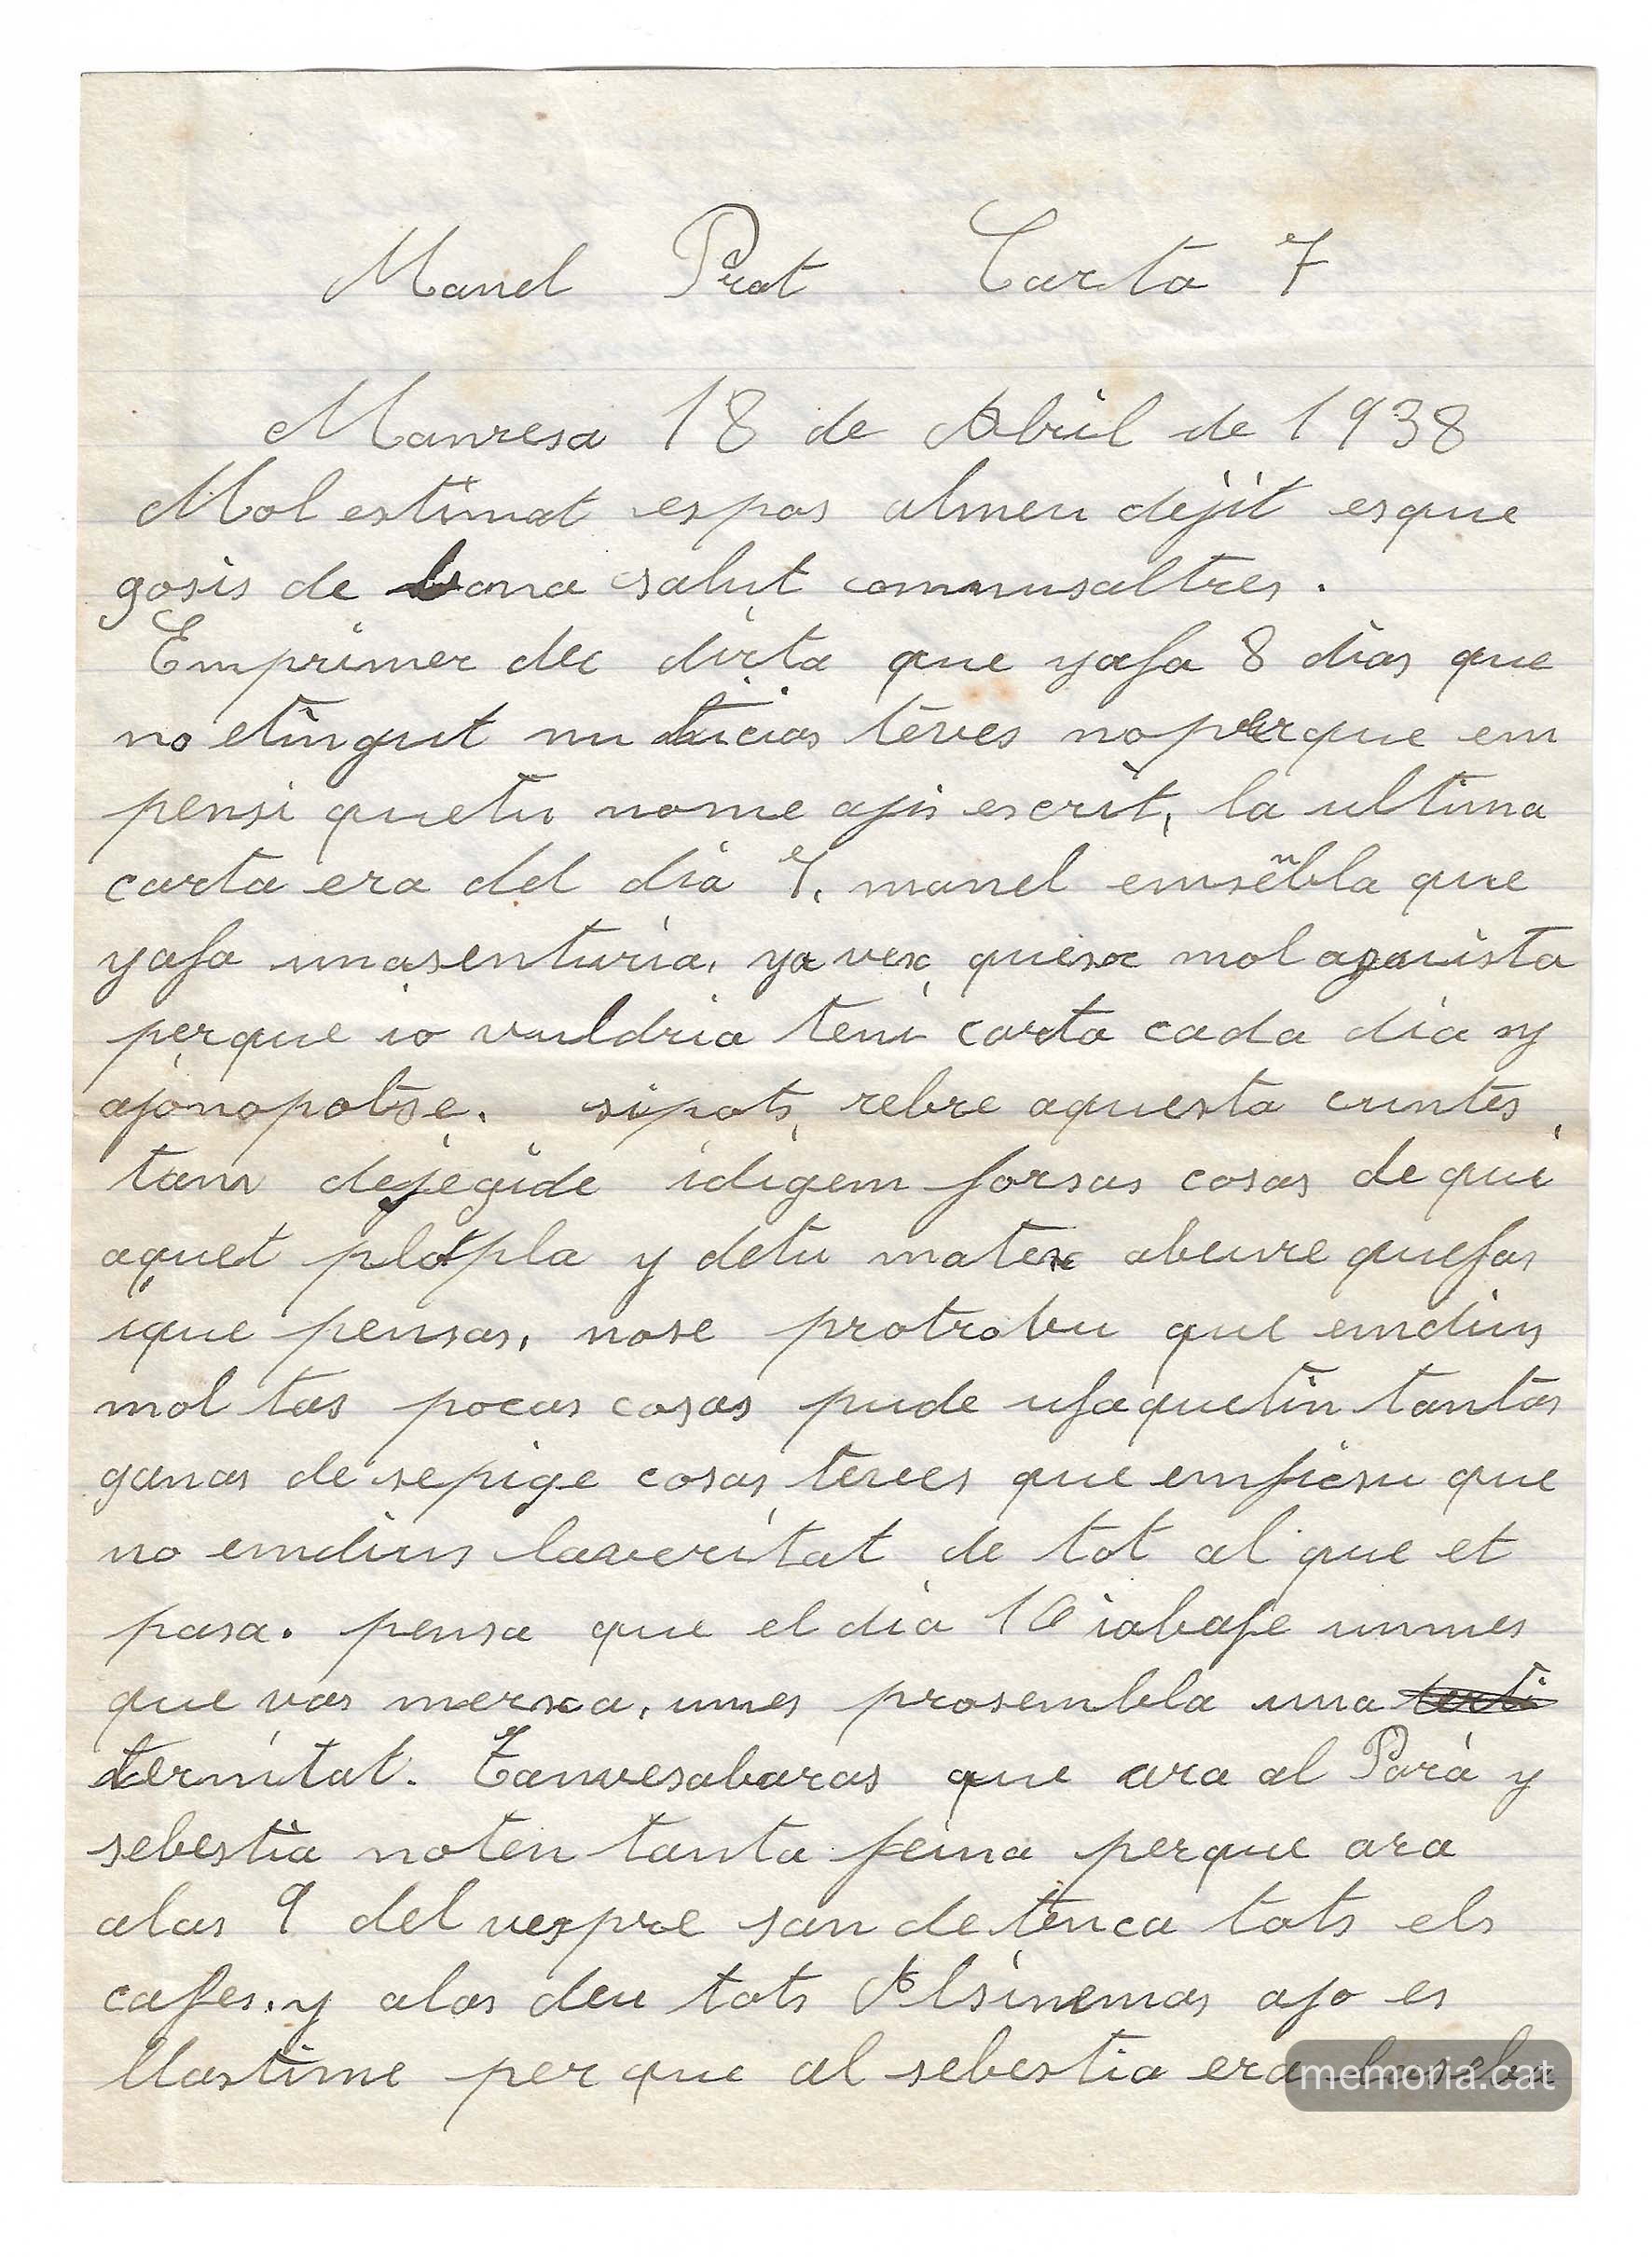 Manel Prat Carta 7
Manresa 18 de Abril de 1938
Mol estimat espos almeu dejit esque
gosis de bona salut commusaltres.
Emprimer dec dirta que yafa 8 dias que
no etingut nuticias teves noperque em
pensi quetu nome ajis escrit, la ultima
carta era del dia 7. manel emsenbla que
yafa unasenturia. ya vex quesx mol aguista
perque io vuldria teni carta cada dia y
ajonopotse. sipots, rebre aquesta cuntes
tam dejegide idigem forsas cosas de qui
aquet plapla y detu matex abeure quefas
ique pensas. nose protrobu que emdius
mol tas pocas cosas pude ufaquetin tantas
ganas de sepige cosas teves que emficsu que
no emdius laveritat de tot al que et
pasa. pensa que el dia 16 iabafe unmes
que vas merxa, unes prosembla una
ternitat. Tanvesabaras que ara al Parà y
sebestia noten tanta feina perque ara
alas 9 del vespre san de tenca tots els
cafes. y alas deu tots Elsinemas ajo es
llastime per que al sebestia era
memoria.cat